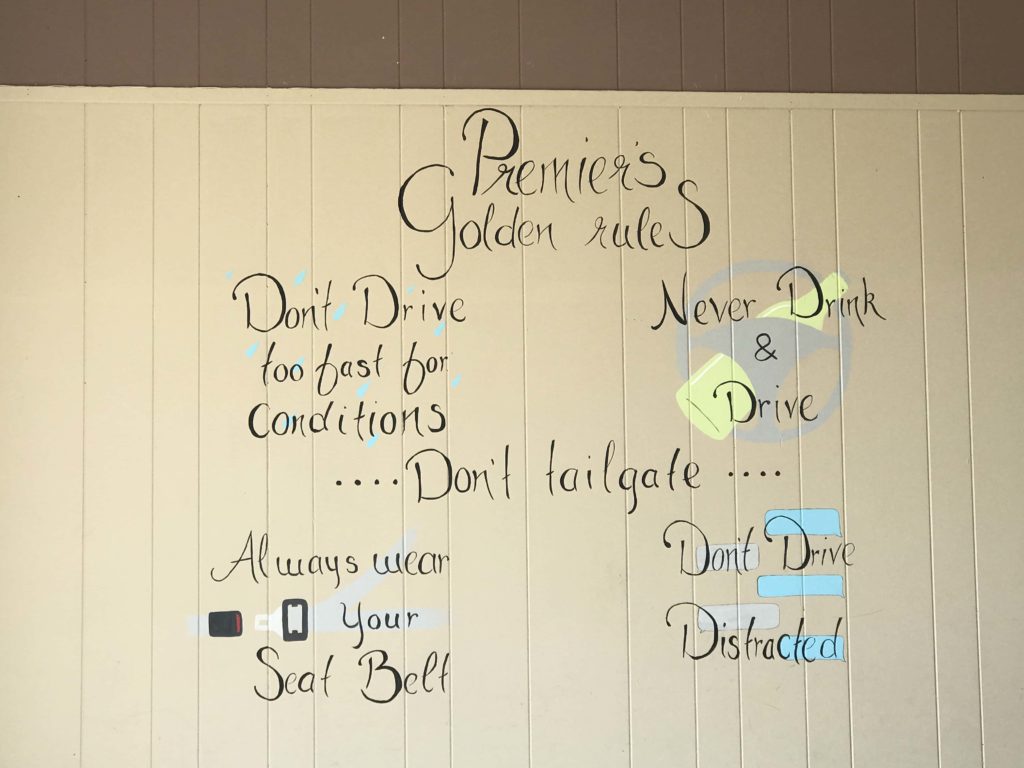 Premier's
Golden rules
Don't Drive
too fast for
Conditions
Never Drink
&
Drive
....Don't tailgate ....
Always wear
Your
Seat Belt
Don't Drive
Distracted